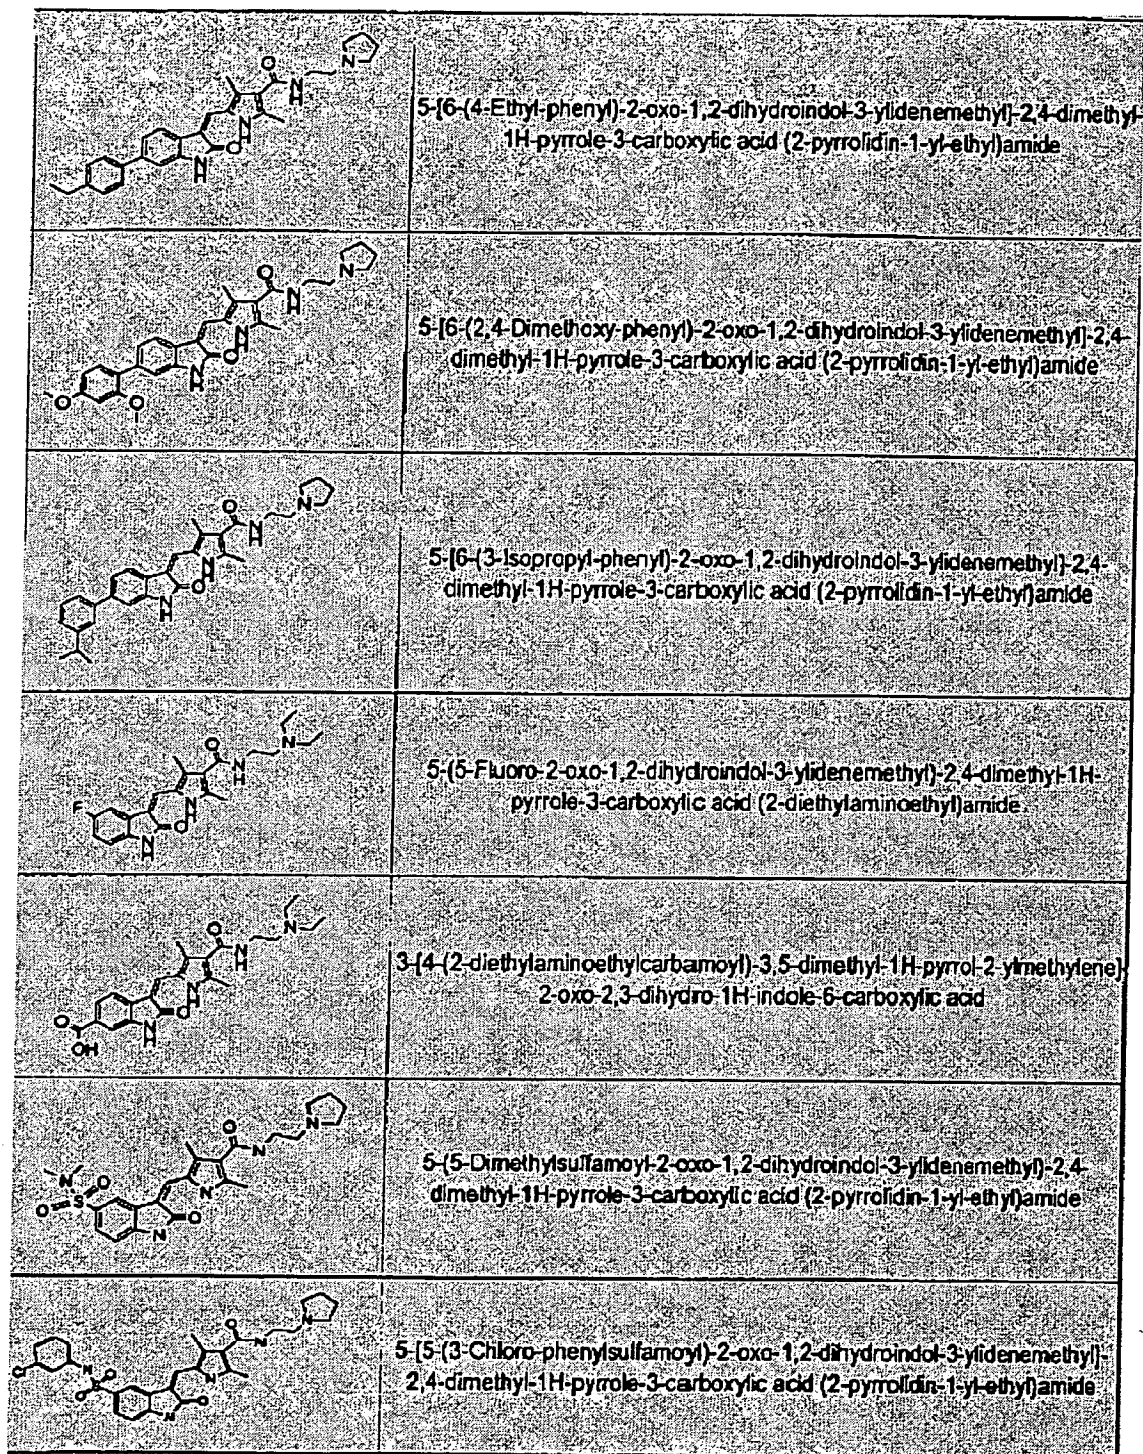 5-[6-(4-Ethyl-phenyl)-2-oxo-1,2-dihydroindol-3-ylidenemethyl]-2,4-dimethyl-
1H-pyrrole-3-carboxylic acid (2-pyrrolidin-1-yl-ethyl)amide
5-[6-(2,4-Dimethoxy-phenyl)-2-oxo-1,2-dihydroindol-3-ylidenemethyl]-2,4-
dimethyl-1H-pyrrole-3-carboxylic acid (2-pyrrolidin-1-yl-ethyl)amide
5-[6-(3-Isopropyl-phenyl)-2-oxo-1,2-dihydroindol-3-ylidenemethyl]-2,4-
dimethyl-1H-pyrrole-3-carboxylic acid (2-pyrrolidin-1-yl-ethyl)amide
5-(5-Fluoro-2-oxo-1,2-dihydroindol-3-ylidenemethyl)-2,4-dimethyl-1H-
pyrrole-3-carboxylic acid (2-diethylaminoethyl)amide
3-[4-(2-diethylaminoethylcarbamoyl)-3,5-dimethyl-1H-pyrrol-2-ylmethylene]-
2-oxo-2,3-dihydro-1H-indole-6-carboxylic acid
5-(5-Dimethylsulfamoyl-2-oxo-1,2-dihydroindol-3-ylidenemethyl)-2,4-
dimethyl-1H-pyrrole-3-carboxylic acid (2-pyrrolidin-1-yl-ethyl)amide
5-[5-(3-Chloro-phenylsulfamoyl)-2-oxo-1,2-dihydroindol-3-ylidenemethyl]-
2,4-dimethyl-1H-pyrrole-3-carboxylic acid (2-pyrrolidin-1-yl-ethyl)amide